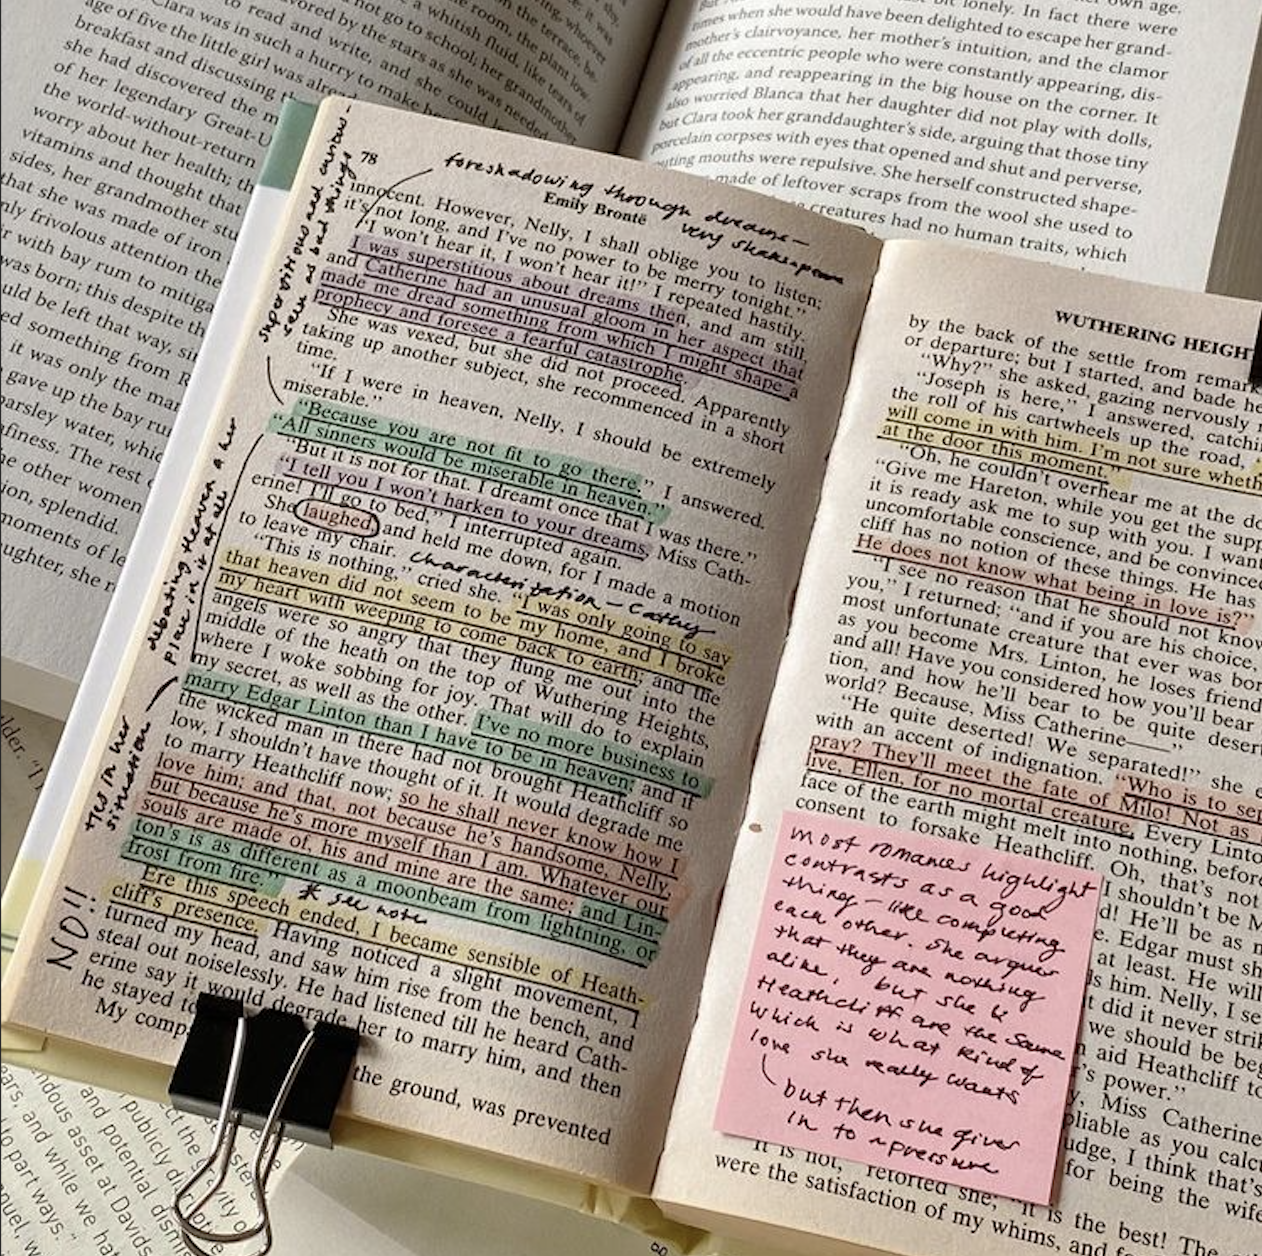 age of five the little girl was alread
breakfast and discussing th
she had discovered the m
of her legendary Great-U
the world-without-return
worry about her health; th
vitamins and thought that
sides, her grandmother stu
that she was made of iron
nly frivolous attention the
r with bay rum to mitiga
was born; this despite th
uld be left that way, sin
ed something from R
it was only the mar
gave up the bay ru
parsley water, whic
finess. The rest
he other women
ion, splendid.
moments of le
ughter, she r
Clara was in such a hurry to make he
to read and write, and she could
vored by the stars as she was needed
not go to school; her grandmother
a whitish fluid, like tears of
the room, the plant
on the terrace, be
whoever
bit lonely. In fact there were
times when she would have been delighted to escape her grand-
mother's clairvoyance, her mother's intuition, and the clamor
of all the eccentric people who were constantly appearing, dis-
appearing, and reappearing in the big house on the corner. It
also worried Blanca that her daughter did not play with dolls,
but Clara took her granddaughter's side, arguing that those tiny
porcelain corpses with eyes that opened and shut and perverse,
outing mouths were repulsive. She herself constructed shape-
made of leftover scraps from the wool she used to
creatures had no human traits, which
78
foreshadowing through dreams –
very shakespeare
Emily Brontë
superstitious and curious
seen as bad things
innocent. However, Nelly, I shall oblige you to listen;
it's not long, and I've no power to be merry tonight."
"I won't hear it, I won't hear it!" I repeated hastily.
I was superstitious about dreams then, and am still,
and Catherine had an unusual gloom in her aspect that
made me dread something from which I might shape a
prophecy and foresee a fearful catastrophe.
She was vexed, but she did not proceed. Apparently
taking up another subject, she recommenced in a short
time.
"If I were in heaven, Nelly, I should be extremely
miserable."
"Because you are not fit to go there," I answered.
"All sinners would be miserable in heaven."
"But it is not for that. I dreamt once that I was there."
"I tell you I won't harken to your dreams, Miss Cath-
erine! I'll go to bed," I interrupted again.
She laughed and held me down, for I made a motion
to leave my chair.
characterization – Cathy
"This is nothing," cried she. "I was only going to say
that heaven did not seem to be my home, and I broke
my heart with weeping to come back to earth; and the
angels were so angry that they flung me out into the
middle of the heath on the top of Wuthering Heights,
where I woke sobbing for joy. That will do to explain
my secret, as well as the other. I've no more business to
marry Edgar Linton than I have to be in heaven; and if
the wicked man in there had not brought Heathcliff so
low, I shouldn't have thought of it. It would degrade me
to marry Heathcliff now; so he shall never know how I
love him; and that, not because he's handsome, Nelly,
but because he's more myself than I am. Whatever our
souls are made of, his and mine are the same; and Lin-
ton's is as different as a moonbeam from lightning, or
frost from fire."
* see note
Ere this speech ended, I became sensible of Heath-
cliff's presence. Having noticed a slight movement, I
turned my head, and saw him rise from the bench, and
steal out noiselessly. He had listened till he heard Cath-
erine say it would degrade her to marry him, and then
he stayed to
My comp
the ground, was prevented
debating heaven & her
place in it at all
ties in her
situation
NO!!
WUTHERING HEIGHT
by the back of the settle from remark
or departure; but I started, and bade he
"Why?" she asked, gazing nervously r
"Joseph is here," I answered, catchi
the roll of his cartwheels up the road,
will come in with him. I'm not sure wheth
at the door this moment."
"Oh, he couldn't overhear me at the do
"Give me Hareton, while you get the supp
it is ready ask me to sup with you. I want
uncomfortable conscience, and be convinced
cliff has no notion of these things. He has
He does not know what being in love is?"
"I see no reason that he should not know
you," I returned; "and if you are his choice,
most unfortunate creature that ever was bor
as you become Mrs. Linton, he loses friend
and all! Have you considered how you'll bear
tion, and how he'll bear to be quite desert
world? Because, Miss Catherine——"
"He quite deserted! We separated!" she e
with an accent of indignation. "Who is to sep
pray? They'll meet the fate of Milo! Not as
live, Ellen, for no mortal creature. Every Linto
face of the earth might melt into nothing, before
consent to forsake Heathcliff. Oh, that's not
I shouldn't be M
d! He'll be as m
e. Edgar must sh
at least. He will
s him. Nelly, I se
t did it never strik
we should be beg
n aid Heathcliff to
's power."
y, Miss Catherine
pliable as you calcu
udge, I think that's
for being the wife
It is not," retorted she; "it is the best! The
were the satisfaction of my whims, and f
most romances highlight
contrasts as a good
thing – like completing
each other. she argues
that they are nothing
alike, but she &
Heathcliff are the same
which is what kind of
love she really wants
but then she gives
in to pressure
ears, and while we hat
to part ways."
nuel, w
ndous asset at Davids
and potential dismis
publicly di
lder. "I